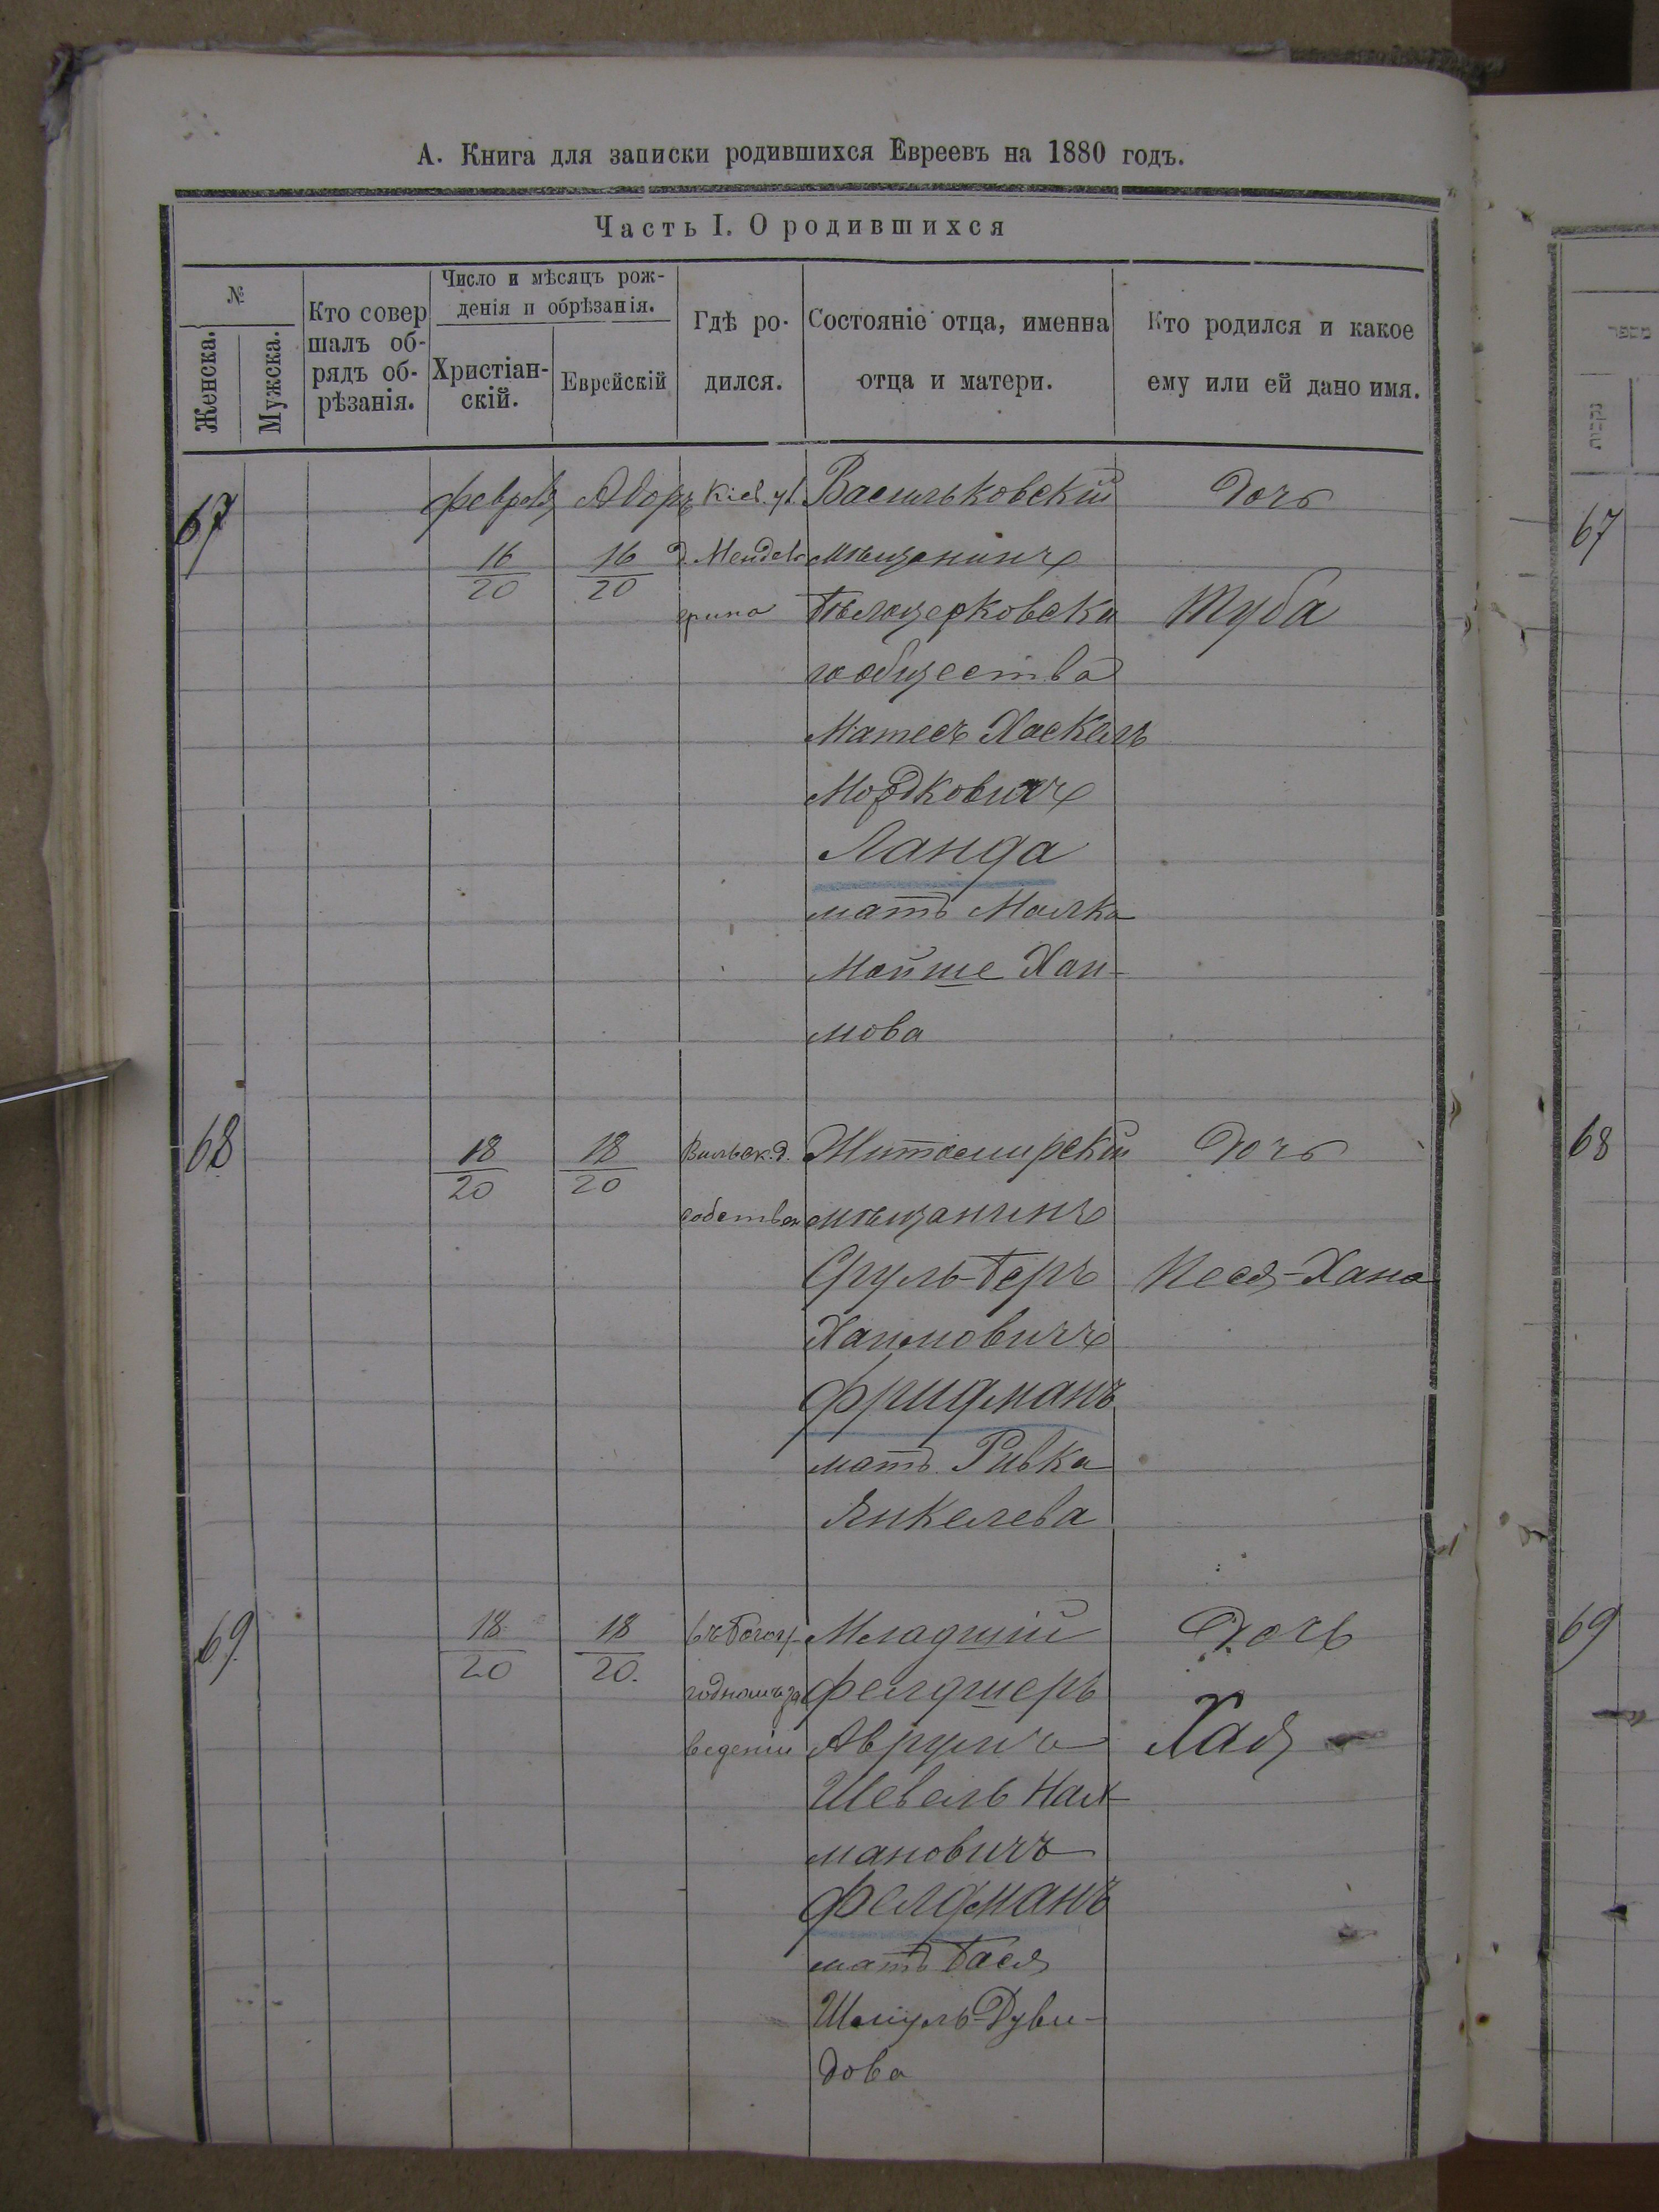 А. Книга для записки родившихся Евреевъ на 1880 годъ.
Часть I. О родившихся
№
Женска.
Мужска.
Кто совер
шалъ об-
рядъ об-
рѣзанія.
Число и мѣсяцъ рож-
денія и обрѣзанія.
Христіан-
скій.
Еврейскій
Гдѣ ро-
дился.
Состояніе отца, именна
отца и матери.
Кто родился и какое
ему или ей дано имя.
67
февраля
16
20
Адоръ
16
20
Кіев. ул.
д. Мендель
грина
Васильковскій
мѣщанинъ
Бѣлоцерковска
го общества
Матесъ Хаскель
Мордковичъ
Ланда
мать Малка
Мойше Хаи-
мова
Дочь
Туба
68
18
20
18
20
Вильск. д.
собствен
Житомирскій
мѣщанинъ
Сруль-Беръ
Хаимовичъ
Фридманъ
мать Ривка
Янкелева
Дочь
Песя-Хана
69
18
20
18
20.
въ Богоу-
годномъ за
веденіи
Младшій
фелдшеръ
Аврумъ
Шевель Нах
мановичъ
Фелдманъ
мать Бася
Шмуль-Дуви-
дова
Дочь
Хая
67
68
69
מספר
נקבות